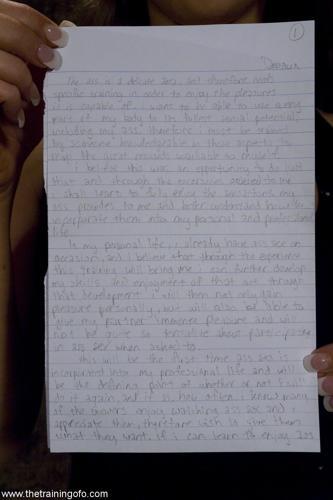 ①
DeepAuln
The ass is a delicate area, and therefore needs
specific training in order to enjoy the pleasures
it is capable of. I want to be able to use every
part of my body to its fullest sexual potential,
including my ass. Therefore I must be trained
by someone knowledgeable in those aspects, to
reap the great rewards available to myself.
I believe this was an opportunity to do just
that and through the exercises offered to me
I shall learn to fully enjoy the sensations my
ass provides to me and better understand how to
incorporate them into my personal and professional
life.
In my personal life, I already have ass sex on
occasion, and I believe that through the experience
this training will bring me, I can further develop
my skills and enjoyment of that act. Through
that development I will then not only gain
pleasure personally, but will also be able to
give my partner immense pleasure and will
not be quite so tentative about participating
in ass sex when asked to.
This will be the first time ass sex is
incorporated into my professional life and will
be the defining point of whether or not I will
do it again, and if so, how often. I know many
of the viewers enjoy watching ass sex and I
appreciate them, therefore wish to give them
what they want. If I can learn to enjoy ass
www.thetrainingofo.com